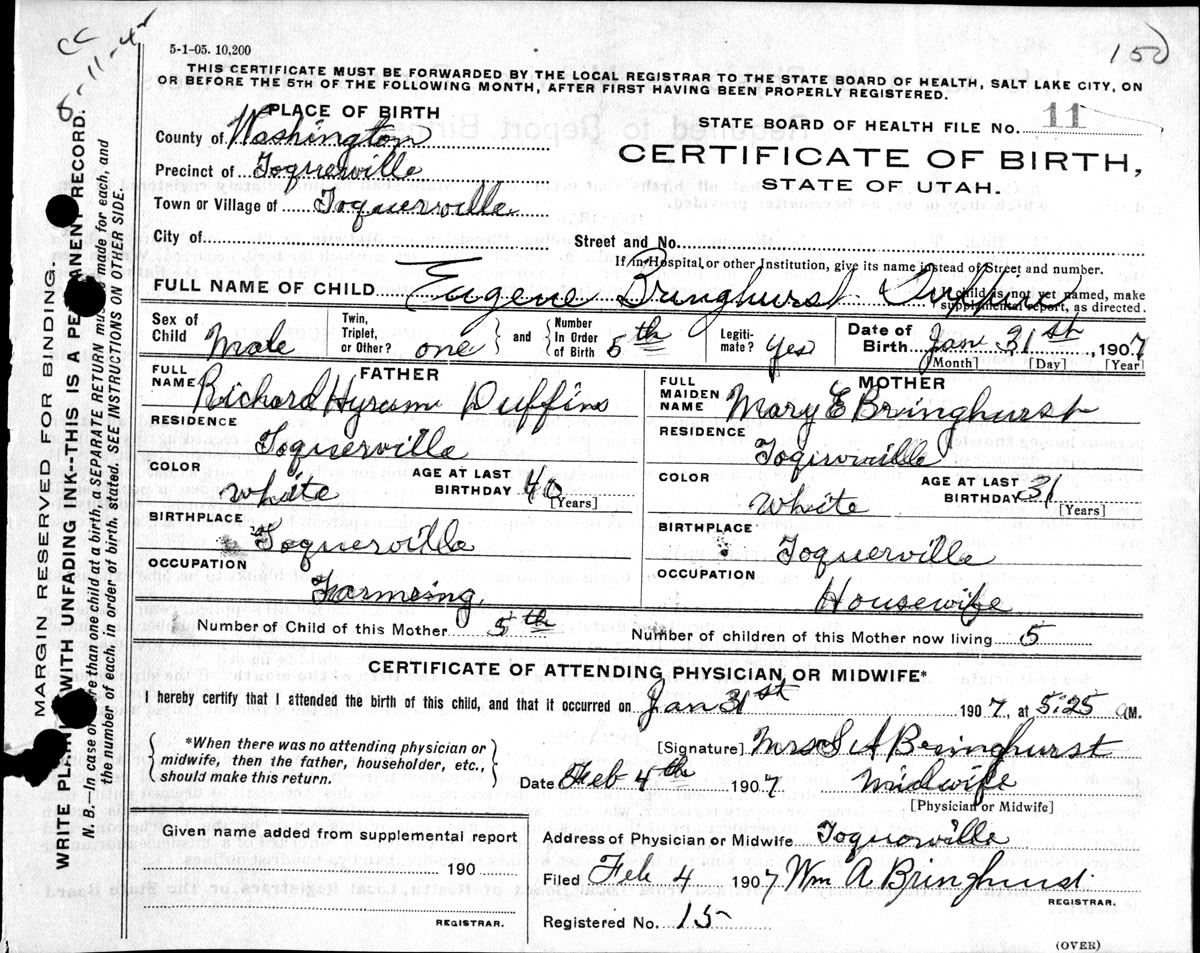 cc
8-11-45
150
5-1-05. 10,200
THIS CERTIFICATE MUST BE FORWARDED BY THE LOCAL REGISTRAR TO THE STATE BOARD OF HEALTH, SALT LAKE CITY, ON
OR BEFORE THE 5TH OF THE FOLLOWING MONTH, AFTER FIRST HAVING BEEN PROPERLY REGISTERED.
PLACE OF BIRTH
County of Washington
Precinct of Toquerville
Town or Village of Toquerville
City of
STATE BOARD OF HEALTH FILE NO. 11
CERTIFICATE OF BIRTH,
STATE OF UTAH.
Street and No.
If in Hospital or other Institution, give its name instead of Street and number.
FULL NAME OF CHILD Eugene Bringhurst
child is not yet named, make
supplemental report, as directed.
Sex of Child Male
Twin, Triplet, or Other? one
and Number In Order of Birth 5th
Legitimate? Yes
Date of Birth Jan 31st, 1907
[Month] [Day] [Year]
FATHER
FULL NAME Richard Hyrum Duffin
RESIDENCE
Toquerville
COLOR White
AGE AT LAST BIRTHDAY 40 [Years]
BIRTHPLACE
Toquerville
OCCUPATION
Farmeing
MOTHER
FULL MAIDEN NAME Mary E Bringhurst
RESIDENCE
Toquerville
COLOR White
AGE AT LAST BIRTHDAY 31 [Years]
BIRTHPLACE
Toquerville
OCCUPATION
Housewife
Number of Child of this Mother 5th
Number of children of this Mother now living 5
CERTIFICATE OF ATTENDING PHYSICIAN OR MIDWIFE*
I hereby certify that I attended the birth of this child, and that it occurred on Jan 31st 1907, at 5:25 a M.
*When there was no attending physician or
midwife, then the father, householder, etc.,
should make this return.
[Signature] Mrs S A Bringhurst
Date Feb 4th 1907 Midwife
[Physician or Midwife]
Given name added from supplemental report
190
REGISTRAR.
Address of Physician or Midwife Toquerville
Filed Feb 4 1907 Wm A Bringhurst
REGISTRAR.
Registered No. 15
(OVER)
MARGIN RESERVED FOR BINDING.
WRITE PLAINLY WITH UNFADING INK--THIS IS A PERMANENT RECORD.
N. B.—In case of more than one child at a birth, a SEPARATE RETURN must be made for each, and
the number of each, in order of birth, stated. SEE INSTRUCTIONS ON OTHER SIDE.